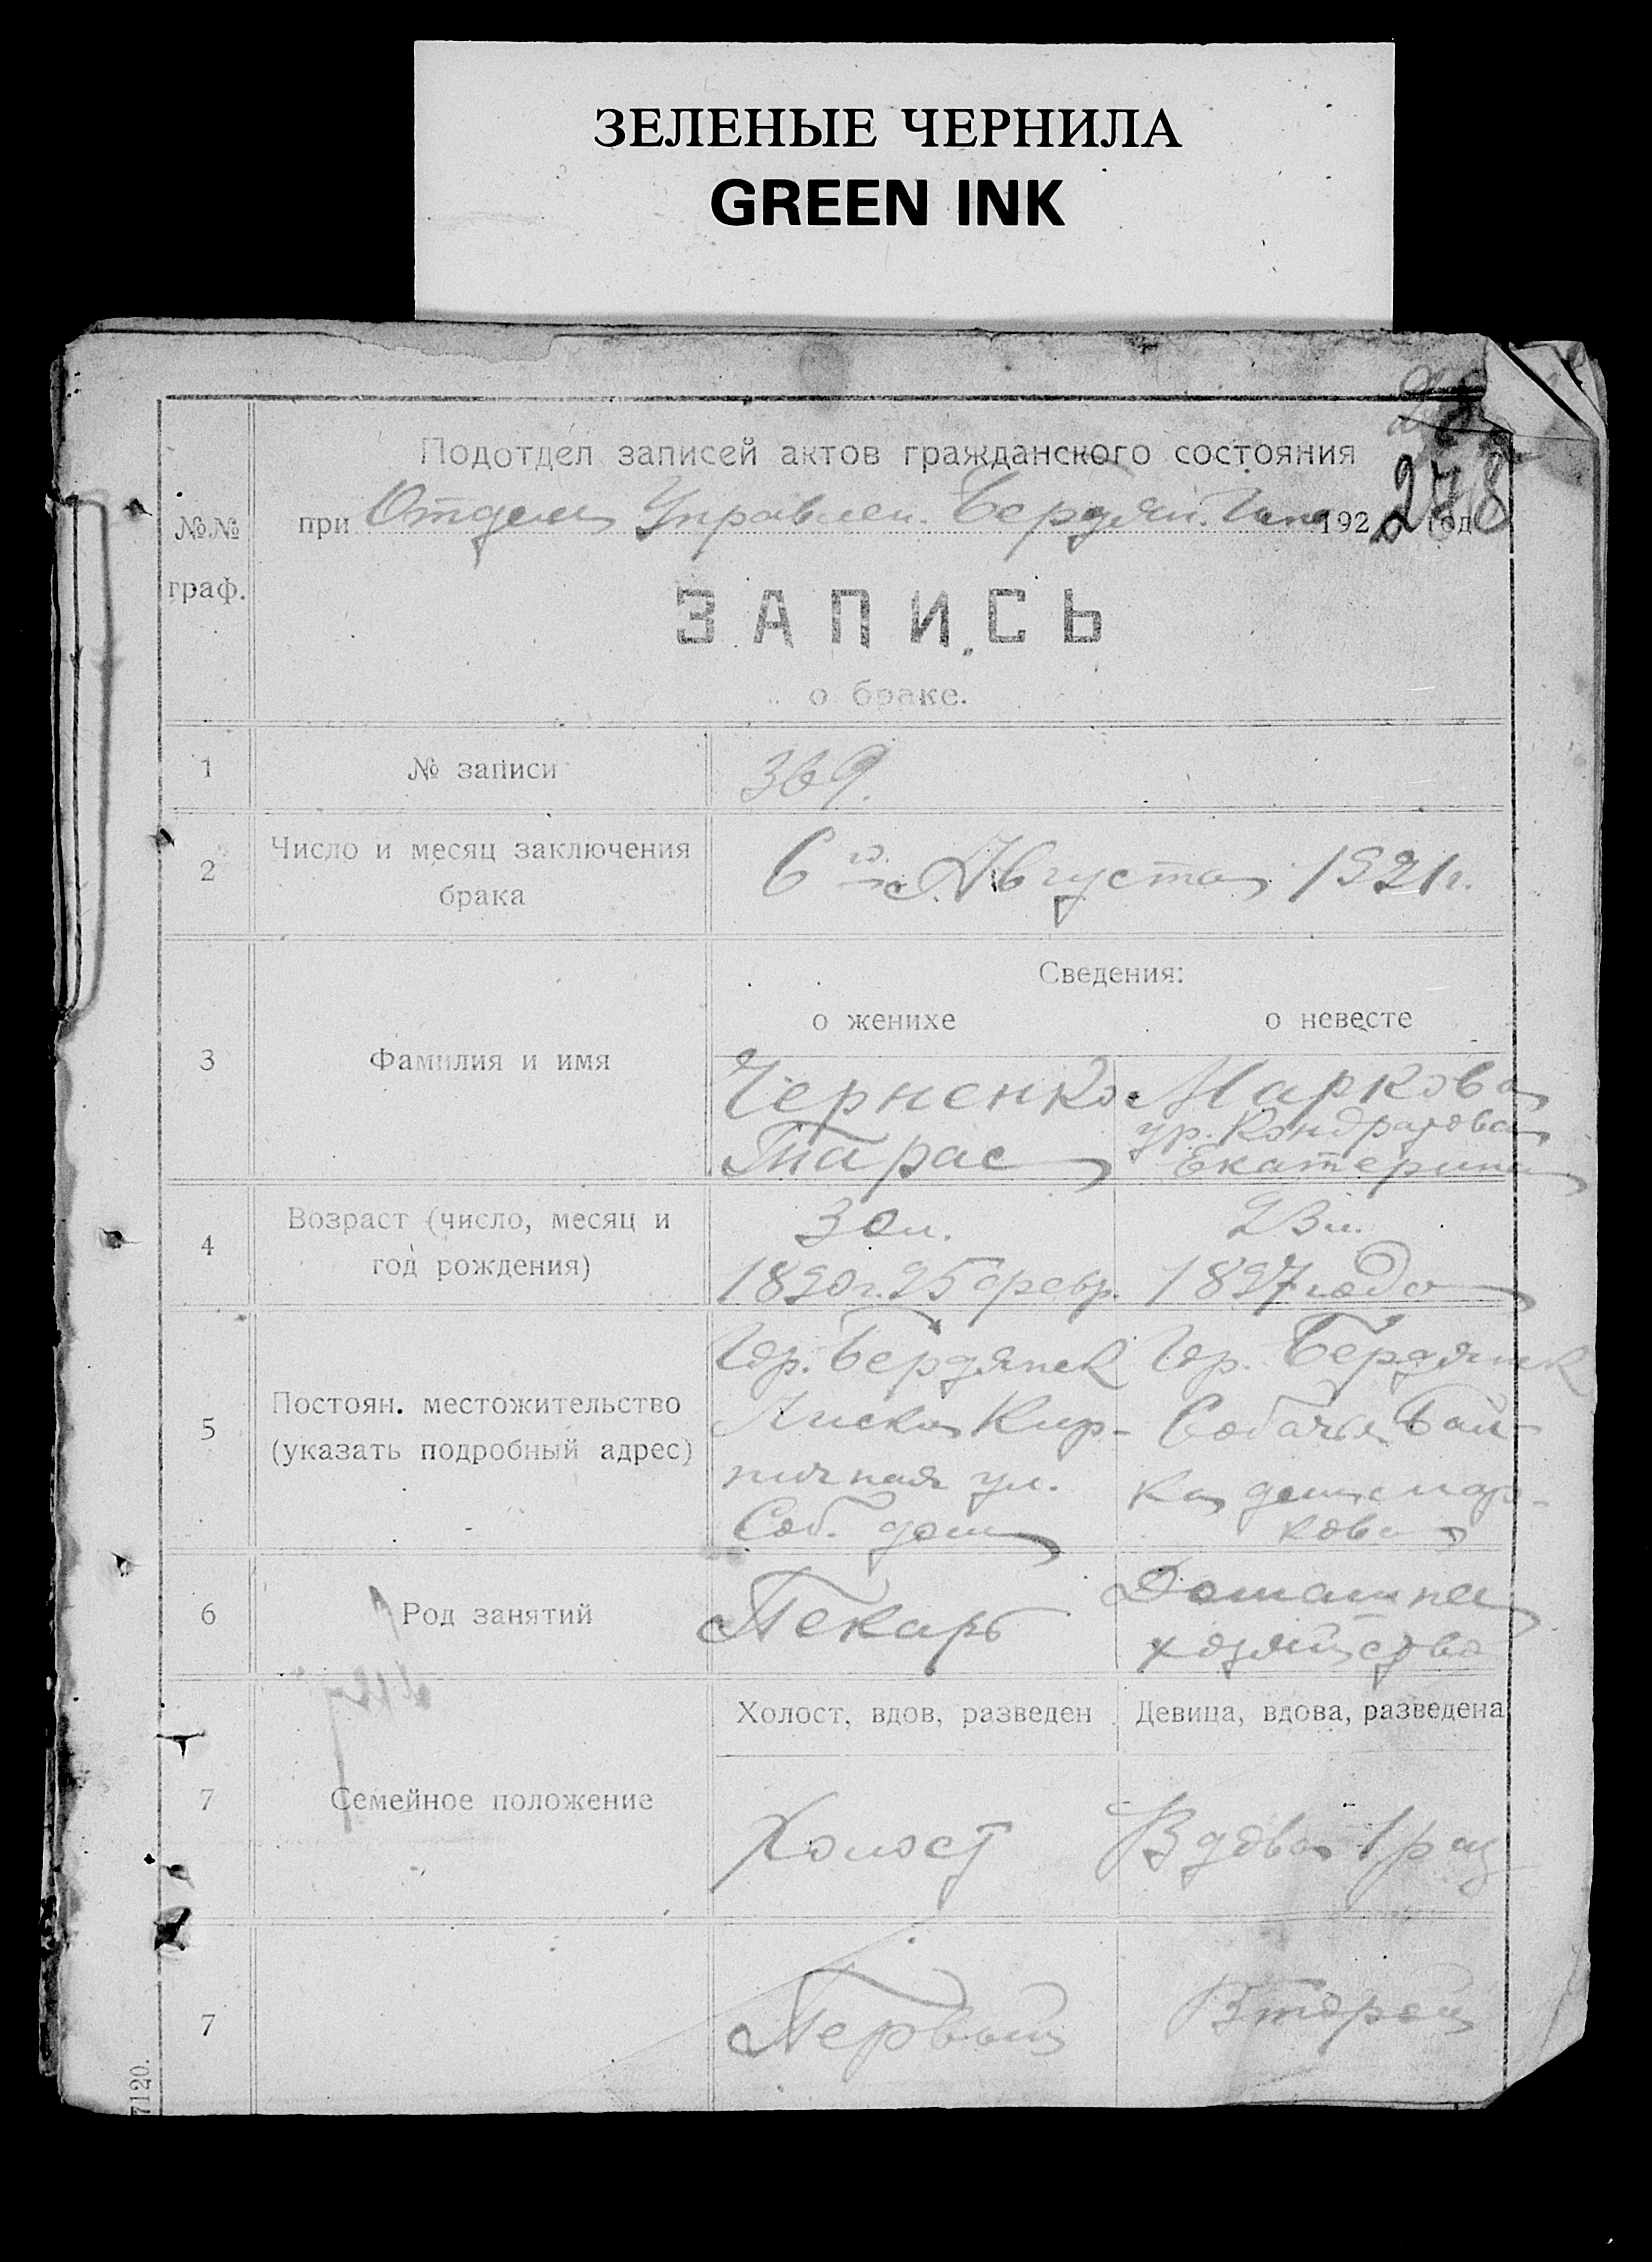 ЗЕЛЕНЫЕ ЧЕРНИЛА
GREEN INK
278
Подотдел записей актов гражданского состояния
№№ граф.
при Отделе Управлен. Бердян. 192 год
ЗАПИСЬ
о браке.
1 № записи 369.
2 Число и месяц заключения брака 6го Августа 1921 г.
Сведения:
о женихе о невесте
3 Фамилия и имя
Черненко Маркова
ур. Кондратова
Тарас Екатерина
4 Возраст (число, месяц и год рождения)
30 л. 23 л.
1890 г. 25 февр. 1897 года
5 Постоян. местожительство (указать подробный адрес)
Гор. Бердянск Гор. Бердянск
Лиски Кир- Собачья Бал-
пичная ул. ка дом Мар-
Соб. дом кова
6 Род занятий
Пекарь Домашнее
хозяйство
Холост, вдов, разведен Девица, вдова, разведена
7 Семейное положение
Холост Вдова 1 раз
7 Первый Второй
7120.